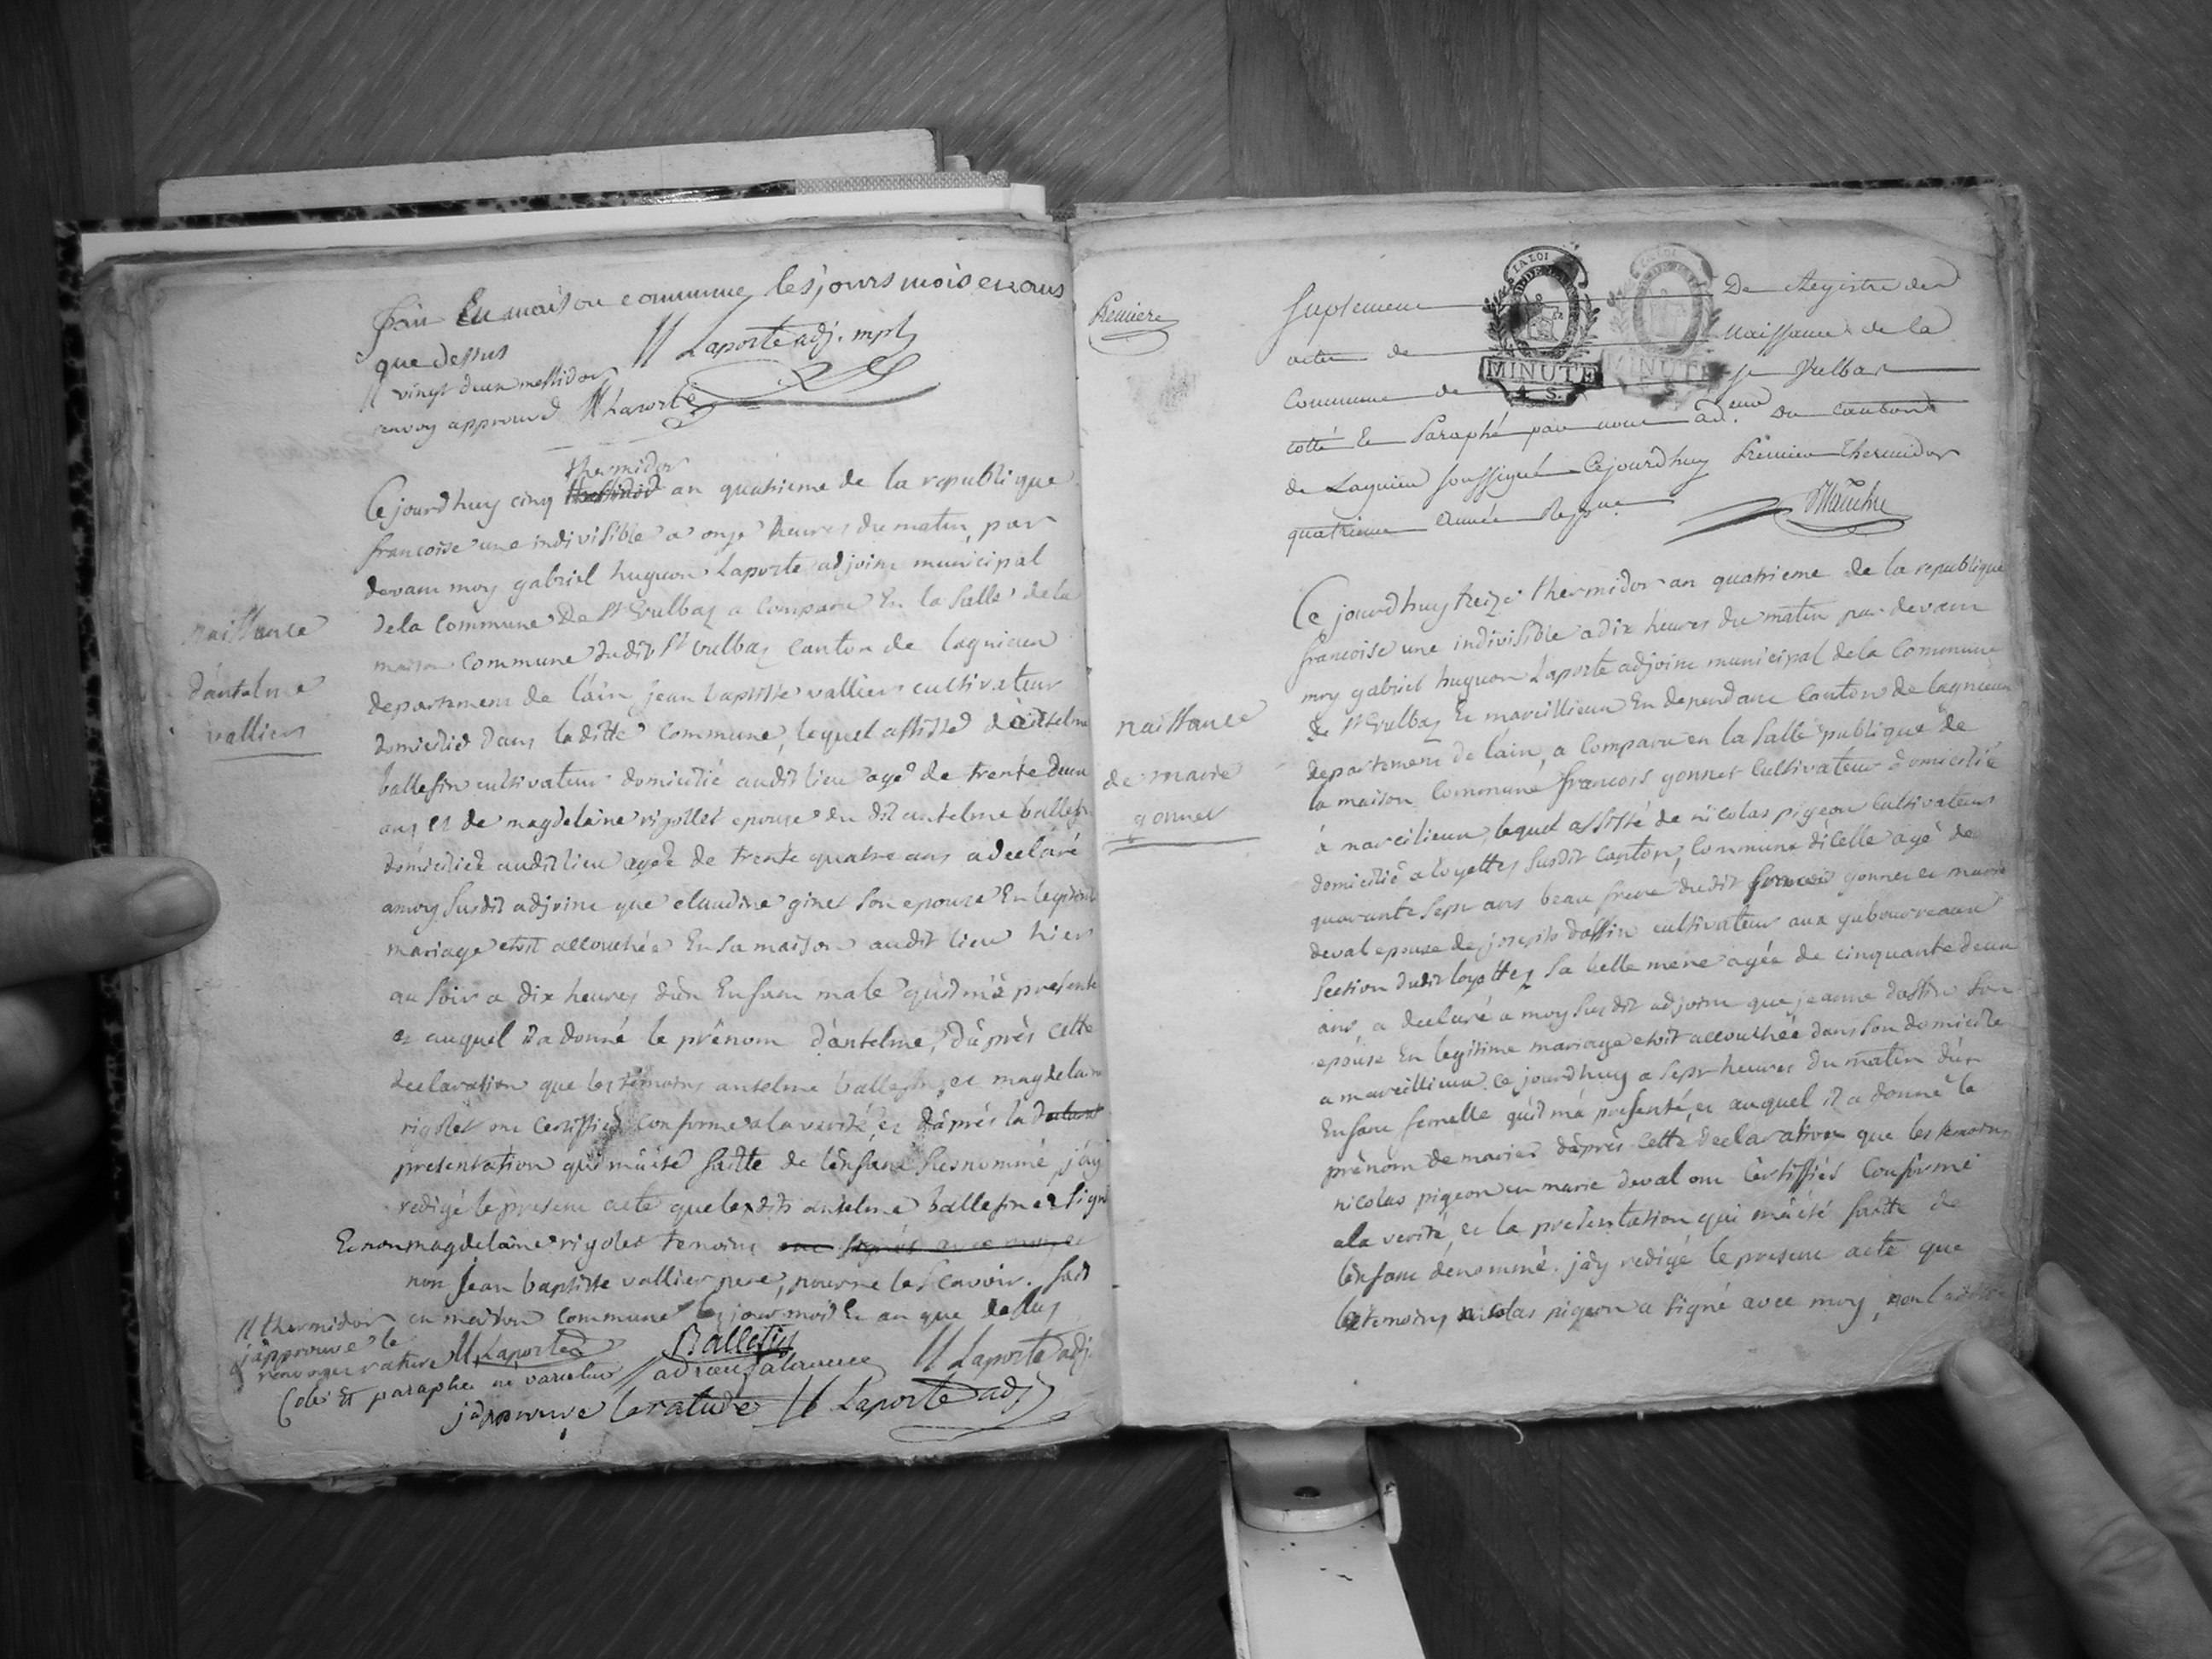 fait En maison commune, les jours mois et ans
que dessus // Laporte adj. mpl
// vingt deux messidor
renvoy approuvé // Laporte
thermidor
Cejourdhuy cinq messidor an quatrieme de la republique
francoise une indivisible a onze heures du matin, par
devant moy gabriel huguon Laporte adjoint municipal
dela commune De St Vulbaz a Comparu En la Salle dela
maison commune dudit St vulbaz Canton de lagnieu
departement de l'ain jean baptiste vallier cultivateur
domicilié dans laditte commune, lequel assisté d'antelme
ballefin cultivateur domicilié audit lieu agé de trente deux
ans et de magdelaine rigollet epouse du dit antelme ballefin
domiciliée audit lieu agée de trente quatre ans a declaré
amoy susdit adjoint que claudine ginet son epouse En legitime
mariage etoit accouchée En sa maison audit lieu hier
au soir a dix heures d'un Enfant male qu'il m'a presenté
et auquel il a donné le prénom d'antelme, d'après cette
declaration que les temoins antelme ballefin, et magdelaine
rigollet ont certiffiés conforme a la verité, et d'après la declarat
presentation qui m'a eté faitte de l'enfant susnommé, j'ay
redigé le present acte que ledit antelme ballefin a signé
Et non magdelaine rigolet temoins ont signés avec moy et
non jean baptiste vallier pere, pour ne le scavoir. fait
// thermidor en maison commune les jour mois et an que dessus
j'approuve le
renvoy et rature // Laporte Ballefin
Coté Et paraphé ne varietur // // Laporte adj.
japprouve la rature // Laporte adj
naissance
d'antelme
vallier
Premiere
Suplement De Registre des
actes de naissance de la
Commune de St Vulbas
MINUTE
4 S.
LA LOI
MINUTE
cotté Et Paraphé par nous ad. du canton
de Lagnieu soussigné Cejourdhuy Premier thermidor
quatrieme année Repque
naissance
de marie
gonnet
Ce jourdhuy treize thermidor an quatrieme de la republique
francoise une indivisible a dix heures du matin par devant
moy gabriel huguon Laporte adjoint municipal dela Commune
de St Vulbaz Et marcillieux En dependant Canton de lagnieu
departement de l'ain, a Comparu en la salle publique de
la maison Commune francois gonnet Cultivateur domicilié
à marcilieux, lequel assisté de nicolas pigeon Cultivateur
domicilié a loyettes susdit Canton, Commune d'icelle agé de
quarante sept ans beau frere dudit francois gonnet et marie
deval epouse de joseph dassin cultivateur aux gaboureaux
section dudit loyettez sa belle mere agée de cinquante deux
ans, a declaré a moy susdit adjoint que jeanne dassin son
epouse En legitime mariage etoit accouchée dans son domicile
a marcillieux cejourdhuy a sept heures du matin d'un
Enfant femelle qu'il m'a presenté, et auquel il a donné le
prénom de marie d'après cette declaration que les temoins
nicolas pigeon et marie deval ont certiffiés Conforme
a la verité, et la presentation qui m'a eté faitte de
l'enfant dénommé. j'ay redigé le present acte que
le temoins nicolas pigeon a signé avec moy,